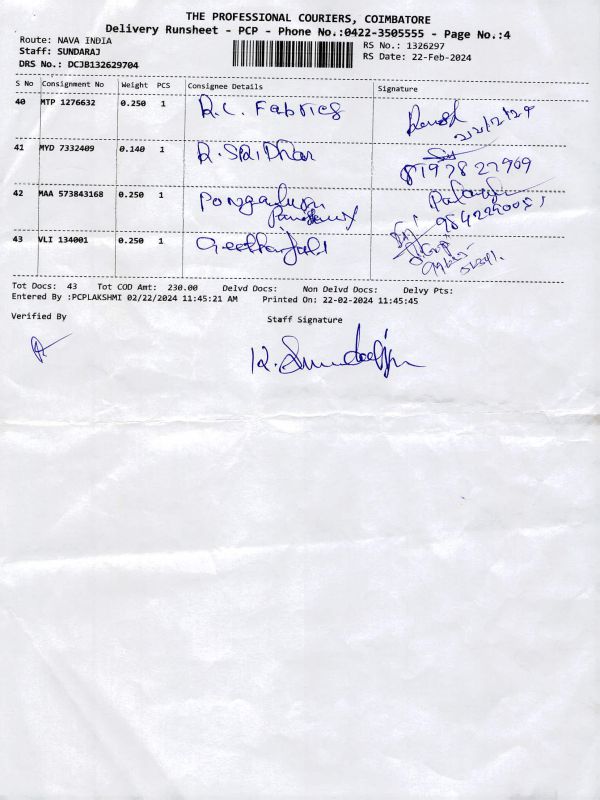 THE PROFESSIONAL COURIERS, COIMBATORE
Delivery Runsheet - PCP - Phone No.:0422-3505555 - Page No.:4
Route: NAVA INDIA
RS No.: 1326297
Staff: SUNDARAJ
RS Date: 22-Feb-2024
DRS No.: DCJB132629704
S No Consignment No Weight PCS Consignee Details Signature
40 MTP 1276632 0.250 1 R.C. Fabrics
41 MYD 7332409 0.140 1 R. SRIDhar
42 MAA 573843168 0.250 1
43 VLI 134001 0.250 1 Geethanjali
Tot Docs: 43 Tot COD Amt: 230.00 Delvd Docs: Non Delvd Docs: Delvy Pts:
Entered By :PCPLAKSHMI 02/22/2024 11:45:21 AM Printed On: 22-02-2024 11:45:45
Verified By Staff Signature